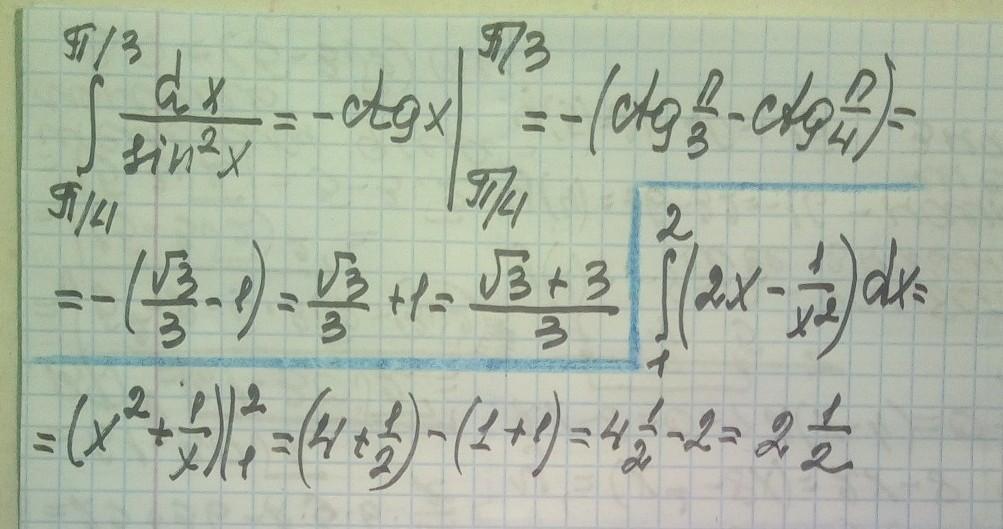 ∫_{π/4}^{π/3} dx/sin²x = -ctgx |_{π/4}^{π/3} = -(ctg π/3 - ctg π/4) =
= -(√3/3 - 1) = √3/3 + 1 = (√3 + 3)/3
∫_1^2 (2x - 1/x²) dx =
= (x² + 1/x) |_1^2 = (4 + 1/2) - (1 + 1) = 4 1/2 - 2 = 2 1/2